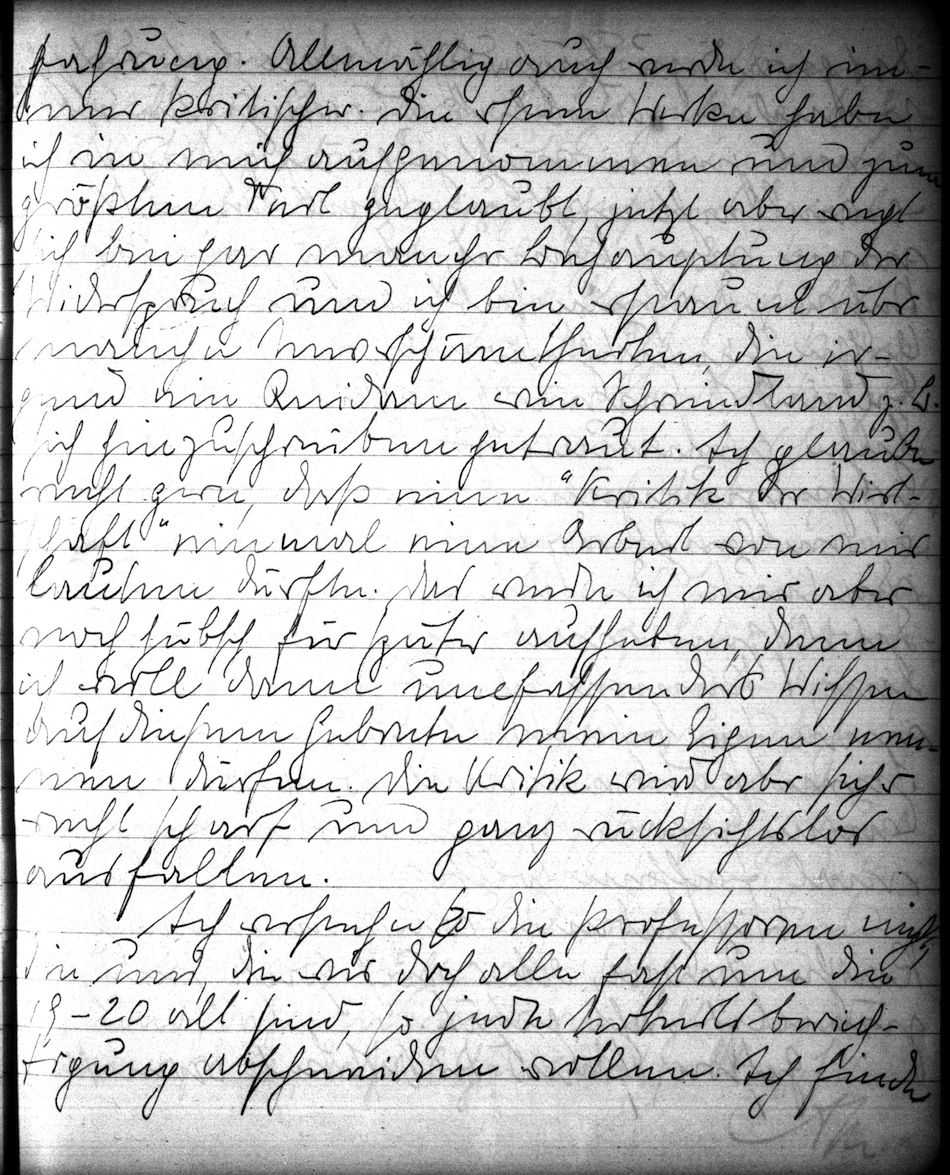 fahrung. Allmählig auch werde ich im-
mer kritischer. Die ersten Werke habe
ich in mich aufgenommen und zum
größten Teil geglaubt, jetzt aber regt
sich bei gar mancher Behauptung der
Widerspruch und ich bin erstaunt über
manche Unverschämtheiten, die ir-
gend ein Quidam wie Schmidland z. B.
sich hinzuschreiben getraut. Ich glaube
recht gern, daß eine "Kritik der Wirt-
schaft" einmal eine Arbeit von mir
lauten dürfte. Das werde ich mir aber
noch hübsch für später aufheben, denn
ich will dann umfassenderes Wissen
auf diesem Gebiete mein Eigen nen-
nen dürfen. Die Kritik wird aber sicher
recht scharf und ganz rücksichtslos
ausfallen.
Ich verstehe so die Professoren nicht,
die uns, die wir doch alle fast um die
19-20 alt sind, so jede Urteilsberech-
tigung abschneiden wollen. Ich finde